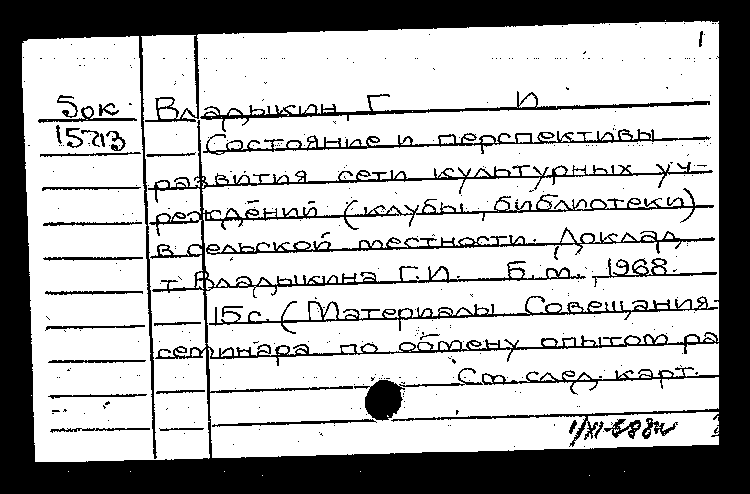 1
5ок Владыкин, Г И
15713 Состояние и перспективы
развития сети культурных уч-
реждений (клубы, библиотеки)
в сельской местности. Доклад
т. Владыкина Г.И. Б.м., 1968.
15с. (Материалы Совещания-
семинара по обмену опытом ра
См. след. карт.